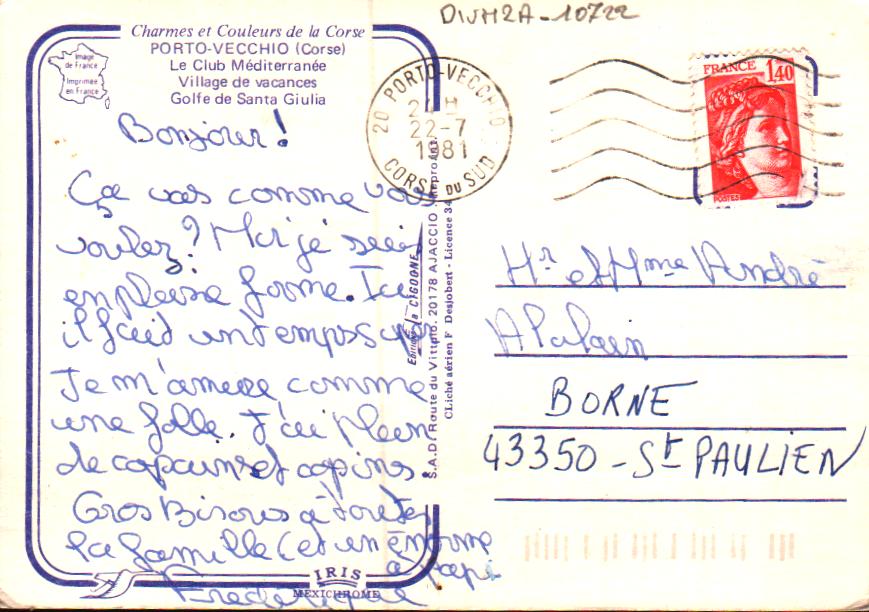 DIVM2A-10722
Charmes et Couleurs de la Corse
PORTO-VECCHIO (Corse)
Le Club Méditerranée
Village de vacances
Golfe de Santa Giulia
Image
de France
Imprimée
en France
20 PORTO-VECCHIO
22-7
1981
CORSE DU SUD
FRANCE 1,40
POSTES
Bonjour!
Ça vas comme vous
voulez? Moi je suis
en pleine forme. Ici
il fait un temps super
Je m'amuse comme
une folle. J'ai plein
de copains et copines.
Gros Bisous à toutes
la famille (et un énorme
à papi
Frédérique
Editions la CIGOGNE
S.A.D. Route du Vittulo. 20178 AJACCIO
CLiché aérien F Desjobert - Licence 34
IRIS
MEXICHROME
Mr et Mme André
BORNE
43350 - St PAULIEN